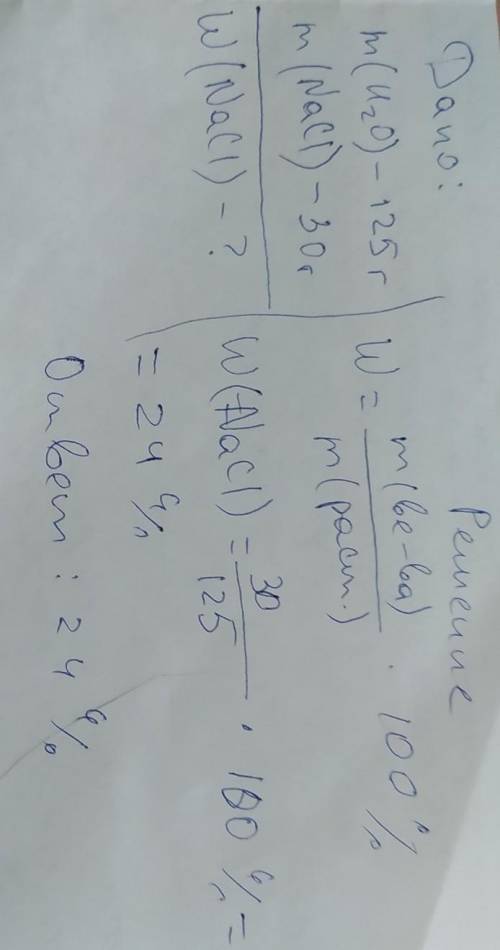 Дано:
m(H₂O) – 125 г
m(NaCl) – 30 г
W(NaCl) – ?
Решение
W = m(ве-ва) / m(раст.) · 100 %
W(NaCl) = 30 / 125 · 100 % =
= 24 %
Ответ : 24 %